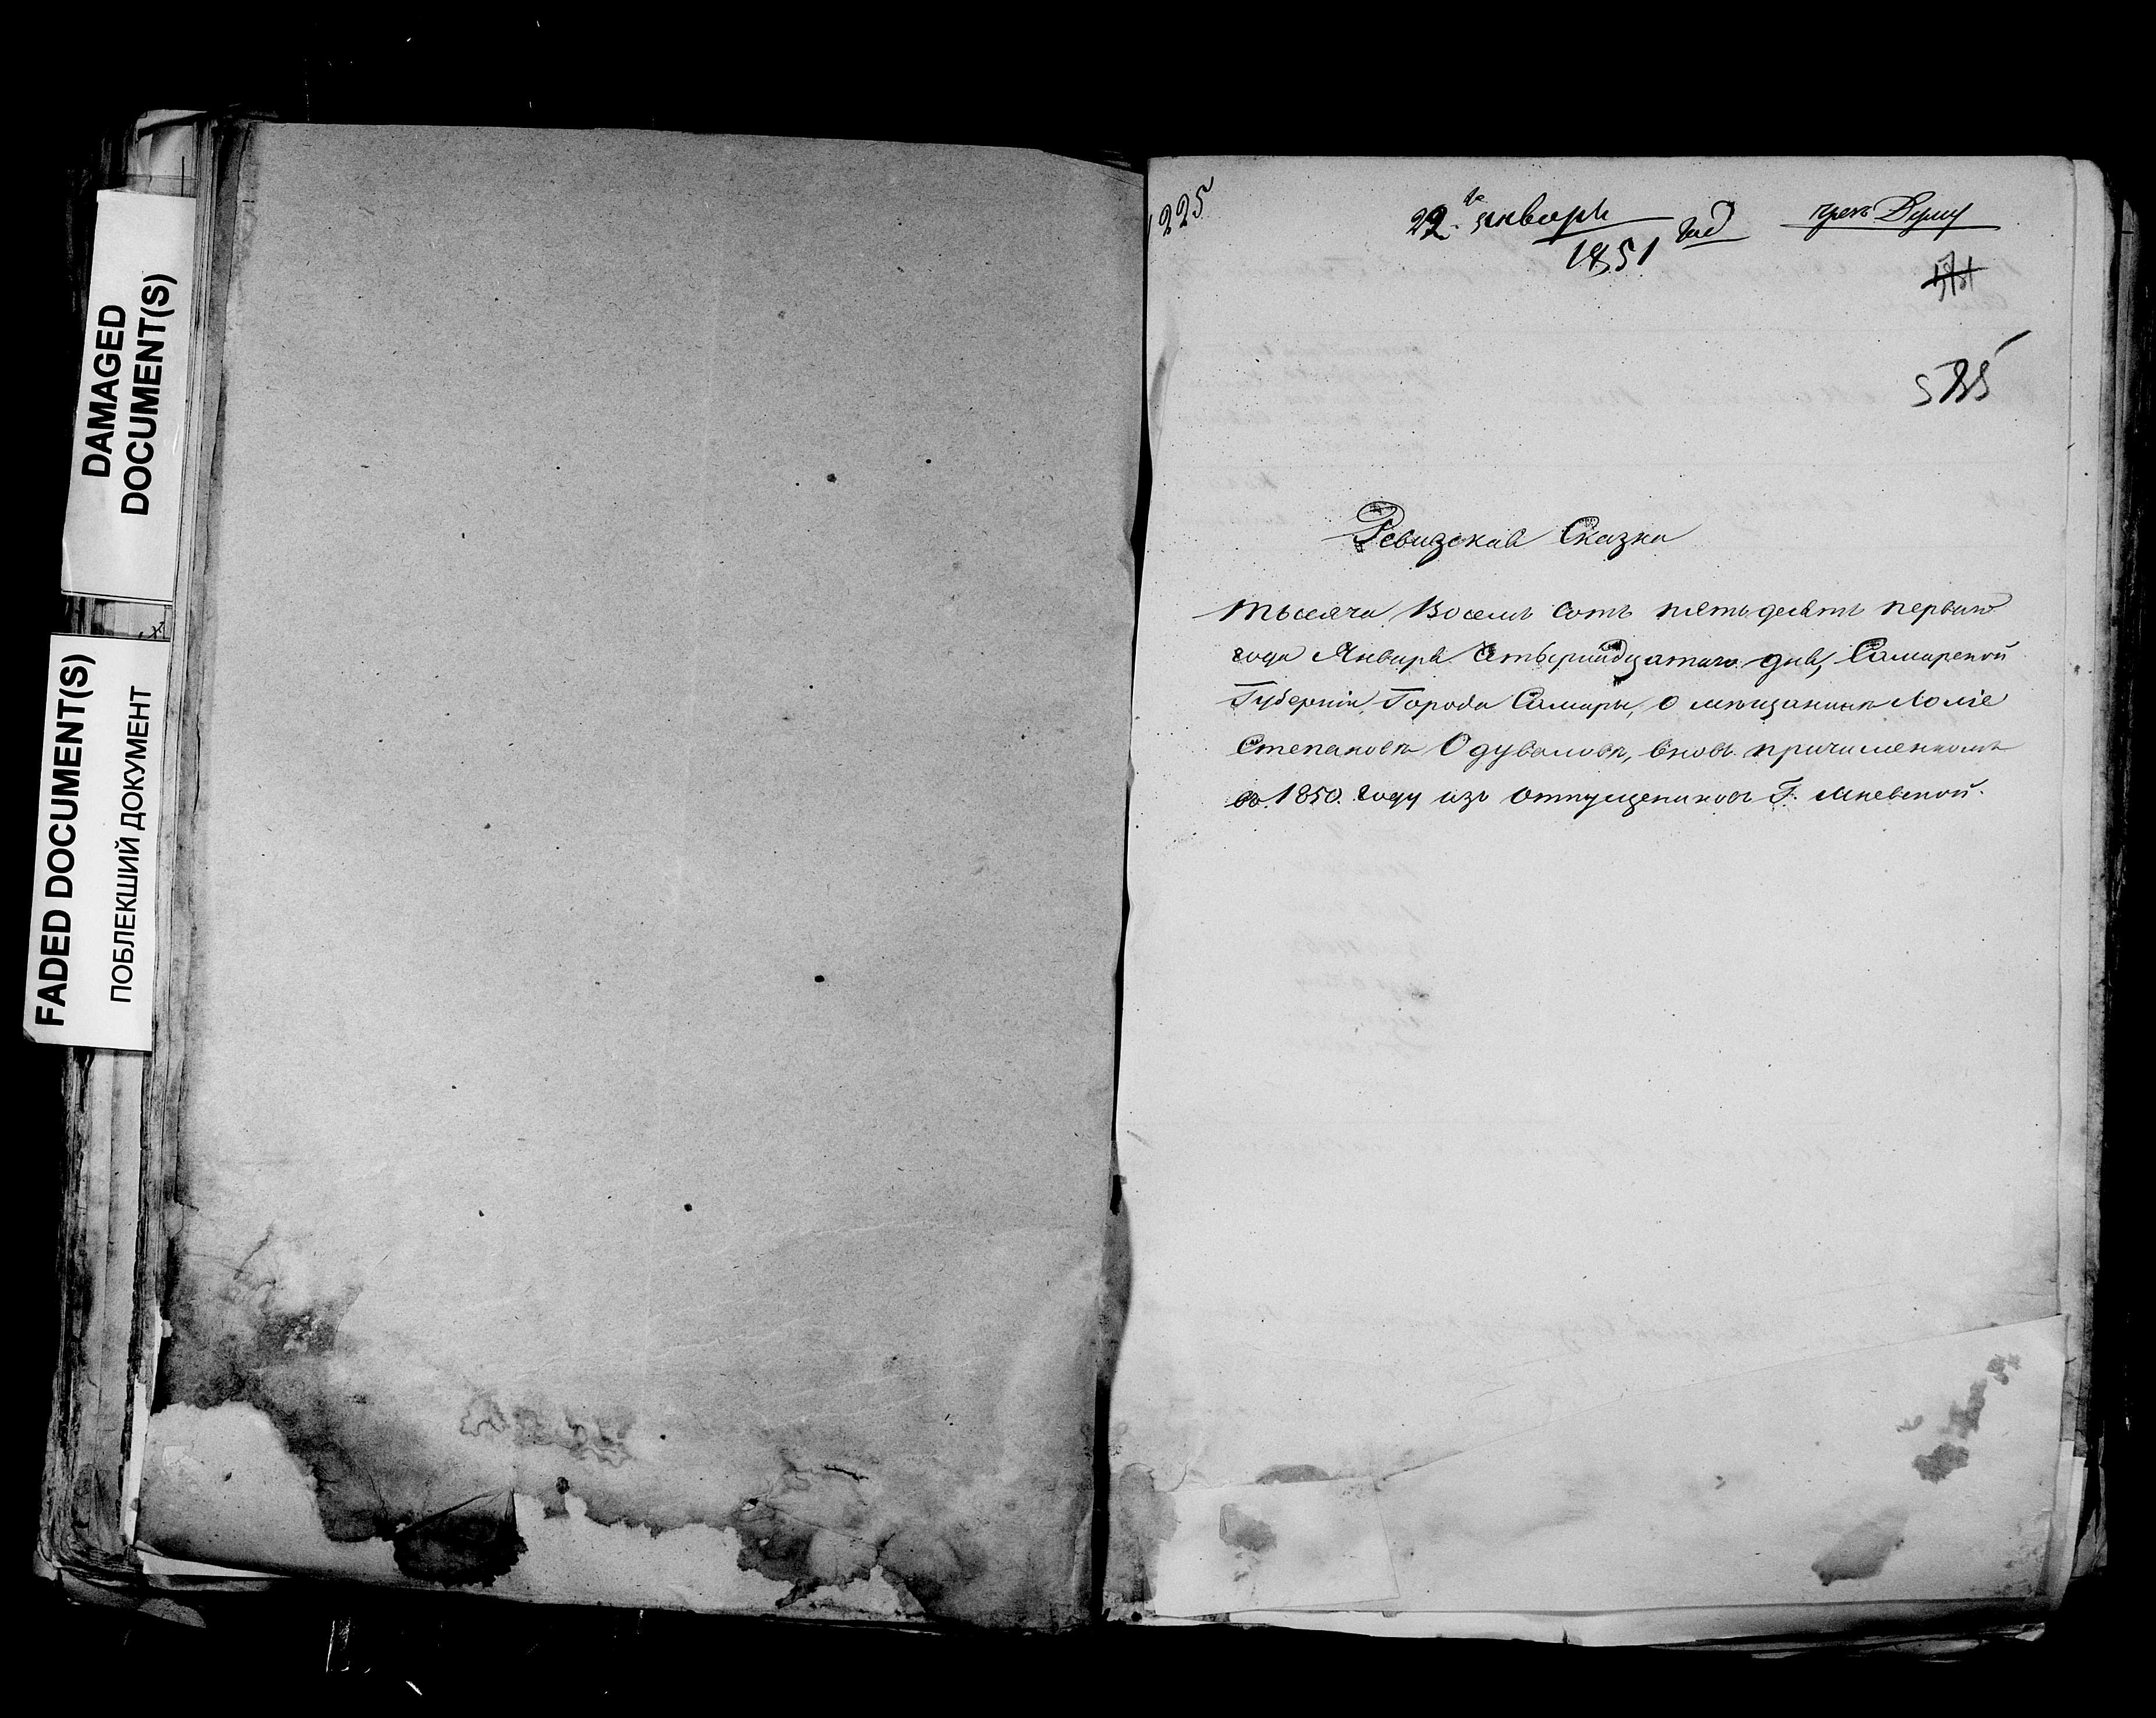 DAMAGED
DOCUMENT(S)
FADED DOCUMENT(S)
ПОБЛЕКШИЙ ДОКУМЕНТ
1225
22го января
1851 год
чрез Думу
Ревизская Сказка
Тысяча Восемь сотъ пятьдесятъ перваго
года Января Четырнадцатаго дня, Самарской
Губерніи, Города Самары, о мѣщанинѣ
Степановѣ Одуваловѣ, вновь причисленномъ
въ 1850. году изъ отпущениковъ Г.